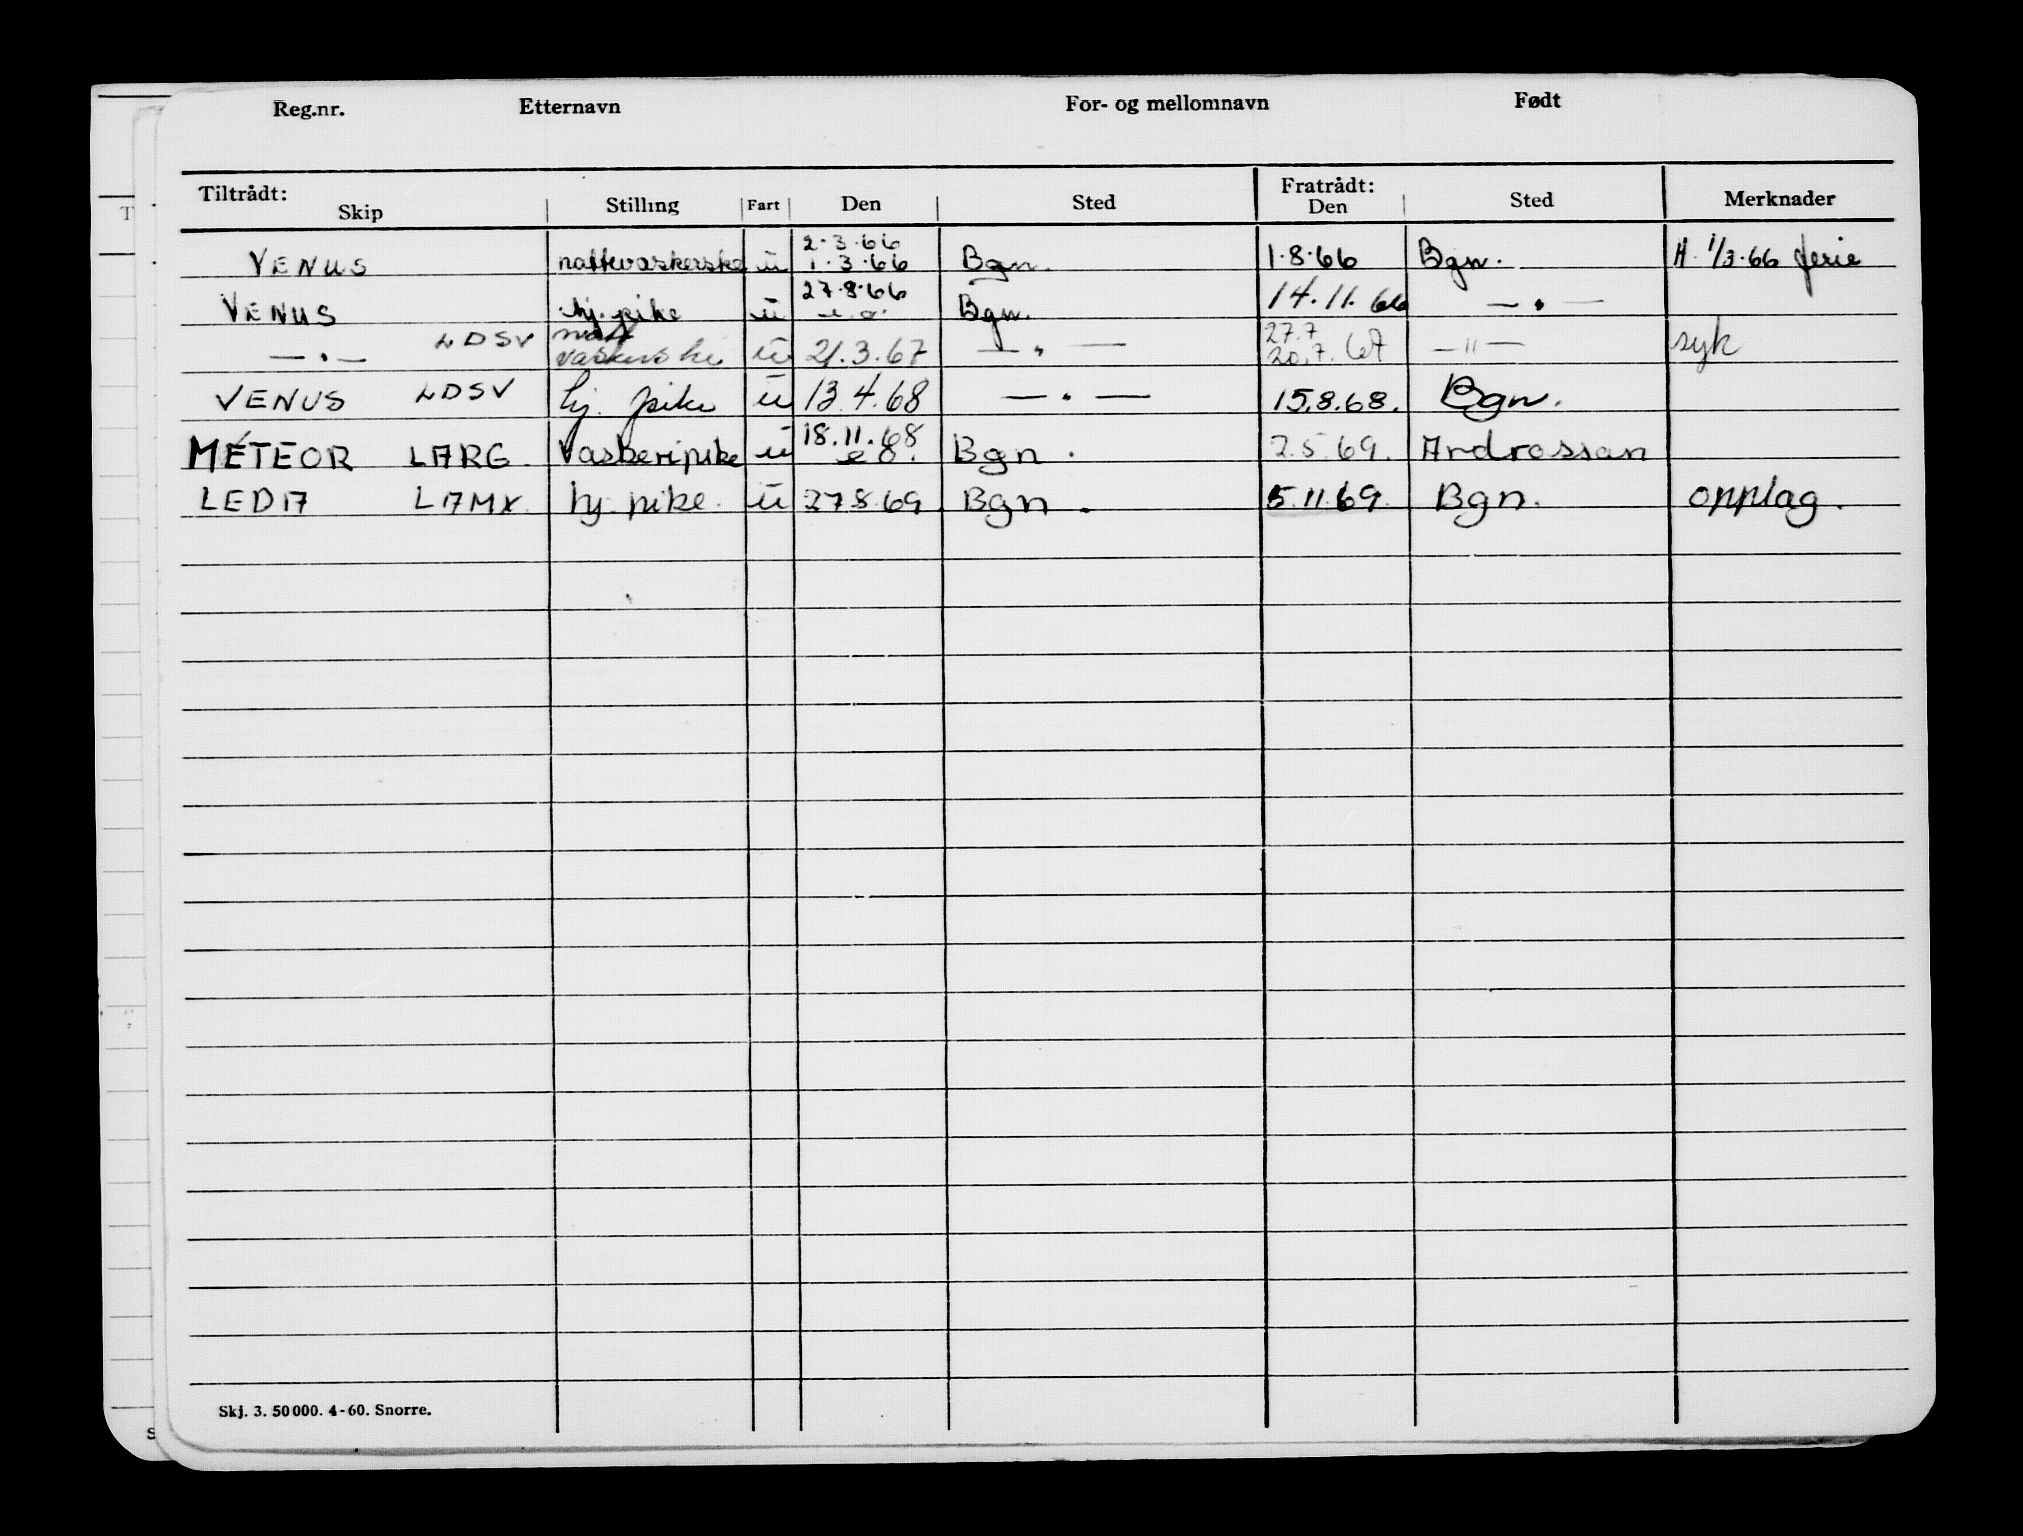 Reg.nr. Etternavn For- og mellomnavn Født
Tiltrådt: Fratrådt:
Skip Stilling Fart Den Sted Den Sted Merknader
2.3.66
VENUS nattevaskerske u 1.3.66 Bgn. 1.8.66 Bgn. H. 1/3.66 ferie
27.8.66
VENUS hj. pike u Bgn. 14.11.66 — " —
natt 27.7
— " — LDSV vaskerske u 21.3.67 — " — 20.7.67 — " — syk
VENUS LDSV hj. pike u 13.4.68 — " — 15.8.68. Bgn.
18.11.68
METEOR LARG Vaskeripike u e.o. Bgn. 2.5.69. Ardrossan
LEDA LAMX. hj. pike. u 27.8.69. Bgn. 5.11.69. Bgn. opplag.
Skj. 3. 50 000. 4-60. Snorre.
T
S